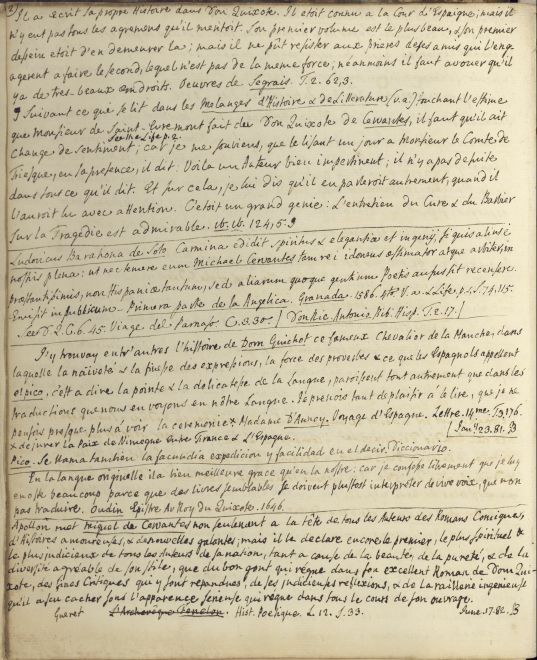 2) Il a ecrit sa propre Histoire dans Don Quixote. Il etoit connu a la Cour d'Espaigne; mais il
n'y eut pas tous les agremens qu'il meritoit. Son premier volume est le plus beau, & son premier
dessein etoit d'en demeurer la; mais il ne pût resister aux prieres de ses amis qui l'eng-
agerent a faire le second, lequel n'est pas de la meme force; neanmoins il faut avouer qu'il
y a de tres-beaux endroits. Oeuvres de Segrais. T. 2. 62,3.
Suivant ce qui se lit dans les Melanges d'Histoire & de Litterature (v.a.) touchant l'estime
que Monsieur de Saint-Evremont fait du Don Quixote de Cervantes, il faut qu'il ait
See the Life p. 2.
change de sentiment; car je me souviens, que le lisant un jour a Monsieur le Comte de
en sa presence, il dit: Voila un Auteur bien impertinent; il n'y a pas de suite
dans tout ce qu'il dit. Et sur cela, je lui dis qu'il en parleroit autrement, quand il
l'auroit lu avec attention. C'etoit un grand genie: L'entretien du Cure & du Barbier
sur la Tragedie est admirable. ib. ib. 124,5.
Ludovicus Barahona de Soto Carmina edidit spiritus & elegantiæ et ingenij, si quis alius è
nostris plena: ut nec temere eum Michael Cervantes tam rei idoneus æstimator atque arbiter, in
præstantissimis, non Hispaniæ tantum, sed aliarum quoque gentium Poetis ausus sit recensere.
Emisit in publicum. Primera parte de la Angelica. Granada. 1586. 4to. V.a. & Life. p. 74,115.
See D. Q. C. 6. 45. Viage del Parnaso. C. 3. 30. / Don Nic. Antonio. Bib. Hisp. T. 2. 17.
J'y trouvay entr'autres l'histoire de Dom Guichot ce fameux Chevalier de la Manche, dans
laquelle la naïveté & la finesse des expressions, la force des proverbes & ce que les Espagnols appellent
el pico, c'est a dire la pointe & la delicatesse de la Langue, paroissent tout autrement que dans les
traductions que nous en voyons en nôtre Langue. Je prenois tant de plaisir a le lire, que je ne
pensois presque plus à voir la ceremonie* Madame D'Aunoy. Voyage d'Espagne. Lettre. 14me. T. 3. 176.
* de jurer la Paix de Nimegue entre France & L'Espagne. Jan. 23. 81. B
Pico. Se llama tambien la facundia expedicion y facilidad en el decir. Diccionario.
En la langue originelle il a bien meilleure grace qu'en la nostre: car je confesse librement que je luy
en oste beaucoup parce que des livres semblables se doivent plustost interpreter de vive voix, que non
pas traduire. Oudin Epistre Au Roy du Quixote. 1646.
Apollon mot Miguel de Cervantes non seulement a la tête de tous les Auteurs des Romans Comiques,
d'Histoires amoureuses, & des nouvelles galantes; mais il le declare encore le premier, le plus spirituel &
le plus judicieux de tous les Auteurs de sa nation, tant a cause de la beauté, de la pureté, & de la
diversité agréable de son stile, que du bon gout qui règne dans son excellent Roman de Dom Qui-
xote, des fines Critiques qui y sont repandues, de ses judicieuses reflexions, & de la raillerie ingenieuse
qu'il a sçu cacher sous l'apparence serieuse qui regne dans tout le cours de son ouvrage.
Gueret L'Archeveque Fenelon. Hist. Poetique. L. 12. S. 33. June. 17. 82. B